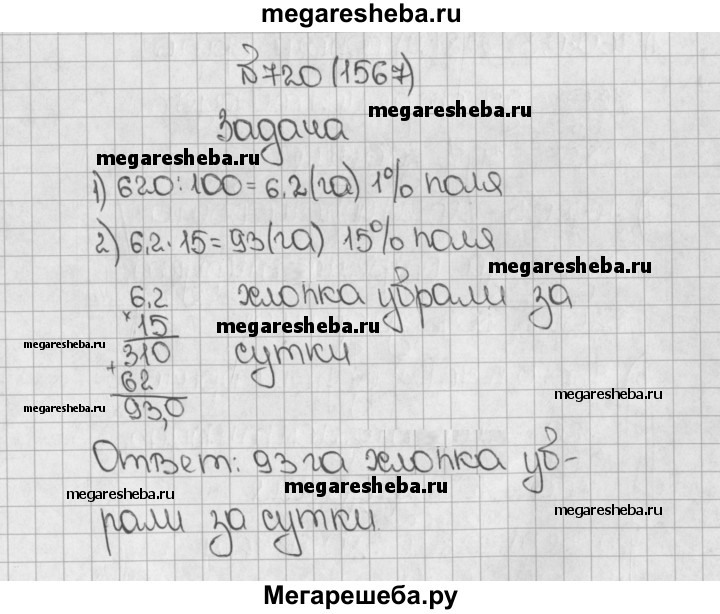 megaresheba.ru
№720 (1567)
megaresheba.ru
Задача
megaresheba.ru
1) 620:100=6,2(га) 1% поля
2) 6,2·15=93(га) 15% поля
megaresheba.ru
6,2 хлопка убрали за
×15 megaresheba.ru
megaresheba.ru 310 сутки
+62
megaresheba.ru 93,0
Ответ: 93 га хлопка уб-
megaresheba.ru megaresheba.ru
рали за сутки.
megaresheba.ru
Мегарешеба.ру